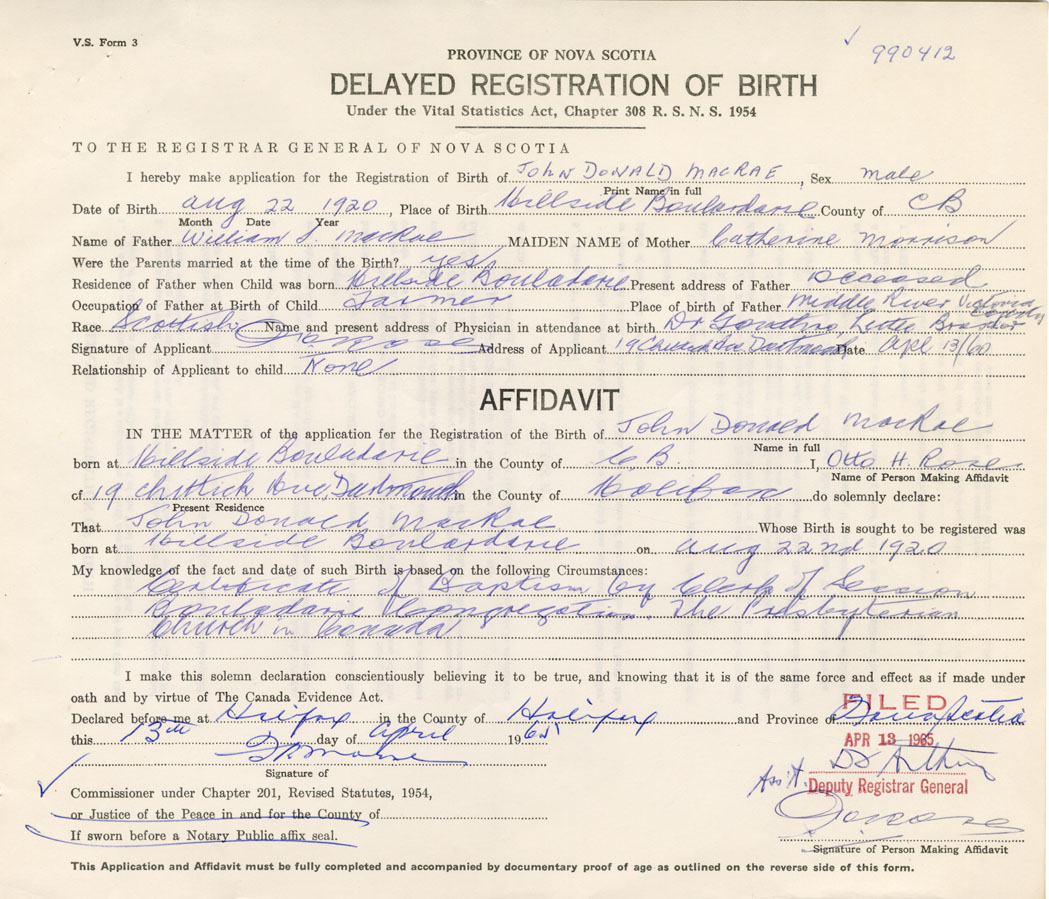 V.S. Form 3
990412
PROVINCE OF NOVA SCOTIA
DELAYED REGISTRATION OF BIRTH
Under the Vital Statistics Act, Chapter 308 R. S. N. S. 1954
TO THE REGISTRAR GENERAL OF NOVA SCOTIA
I hereby make application for the Registration of Birth of John Donald MacRae, Sex male
Print Name in full
Date of Birth Aug 22 1920, Place of Birth Hillside Boulardarie County of CB
Month Date Year
Name of Father William J. MacRae MAIDEN NAME of Mother Catherine Morrison
Were the Parents married at the time of the Birth? yes
Residence of Father when Child was born Hillside Bouladarie Present address of Father Deceased
Occupation of Father at Birth of Child Farmer Place of birth of Father Middle River Victoria County
Race Scottish Name and present address of Physician in attendance at birth Dr Little Bras d'or
Signature of Applicant Address of Applicant 19 Dartmouth Date Apl 13/60
Relationship of Applicant to child None
AFFIDAVIT
IN THE MATTER of the application for the Registration of the Birth of John Donald MacRae
Name in full
born at Hillside Bouladarie in the County of CB I, Otto H. Rose
Name of Person Making Affidavit
of 19 Chittick Ave Dartmouth in the County of Halifax do solemnly declare:
Present Residence
That John Donald MacRae Whose Birth is sought to be registered was
born at Hillside Boulardarie on Aug 22nd 1920
My knowledge of the fact and date of such Birth is based on the following Circumstances:
Certificate of Baptism by Clerk of Session
Bouladarie Congregation. The Presbyterian
Church in Canada
I make this solemn declaration conscientiously believing it to be true, and knowing that it is of the same force and effect as if made under
oath and by virtue of The Canada Evidence Act.
FILED
Declared before me at Halifax in the County of Halifax and Province of Nova Scotia
this 13th day of April 1965
APR 13 1965
Signature of
Ass't. Deputy Registrar General
Commissioner under Chapter 201, Revised Statutes, 1954,
or Justice of the Peace in and for the County of
If sworn before a Notary Public affix seal.
Signature of Person Making Affidavit
This Application and Affidavit must be fully completed and accompanied by documentary proof of age as outlined on the reverse side of this form.